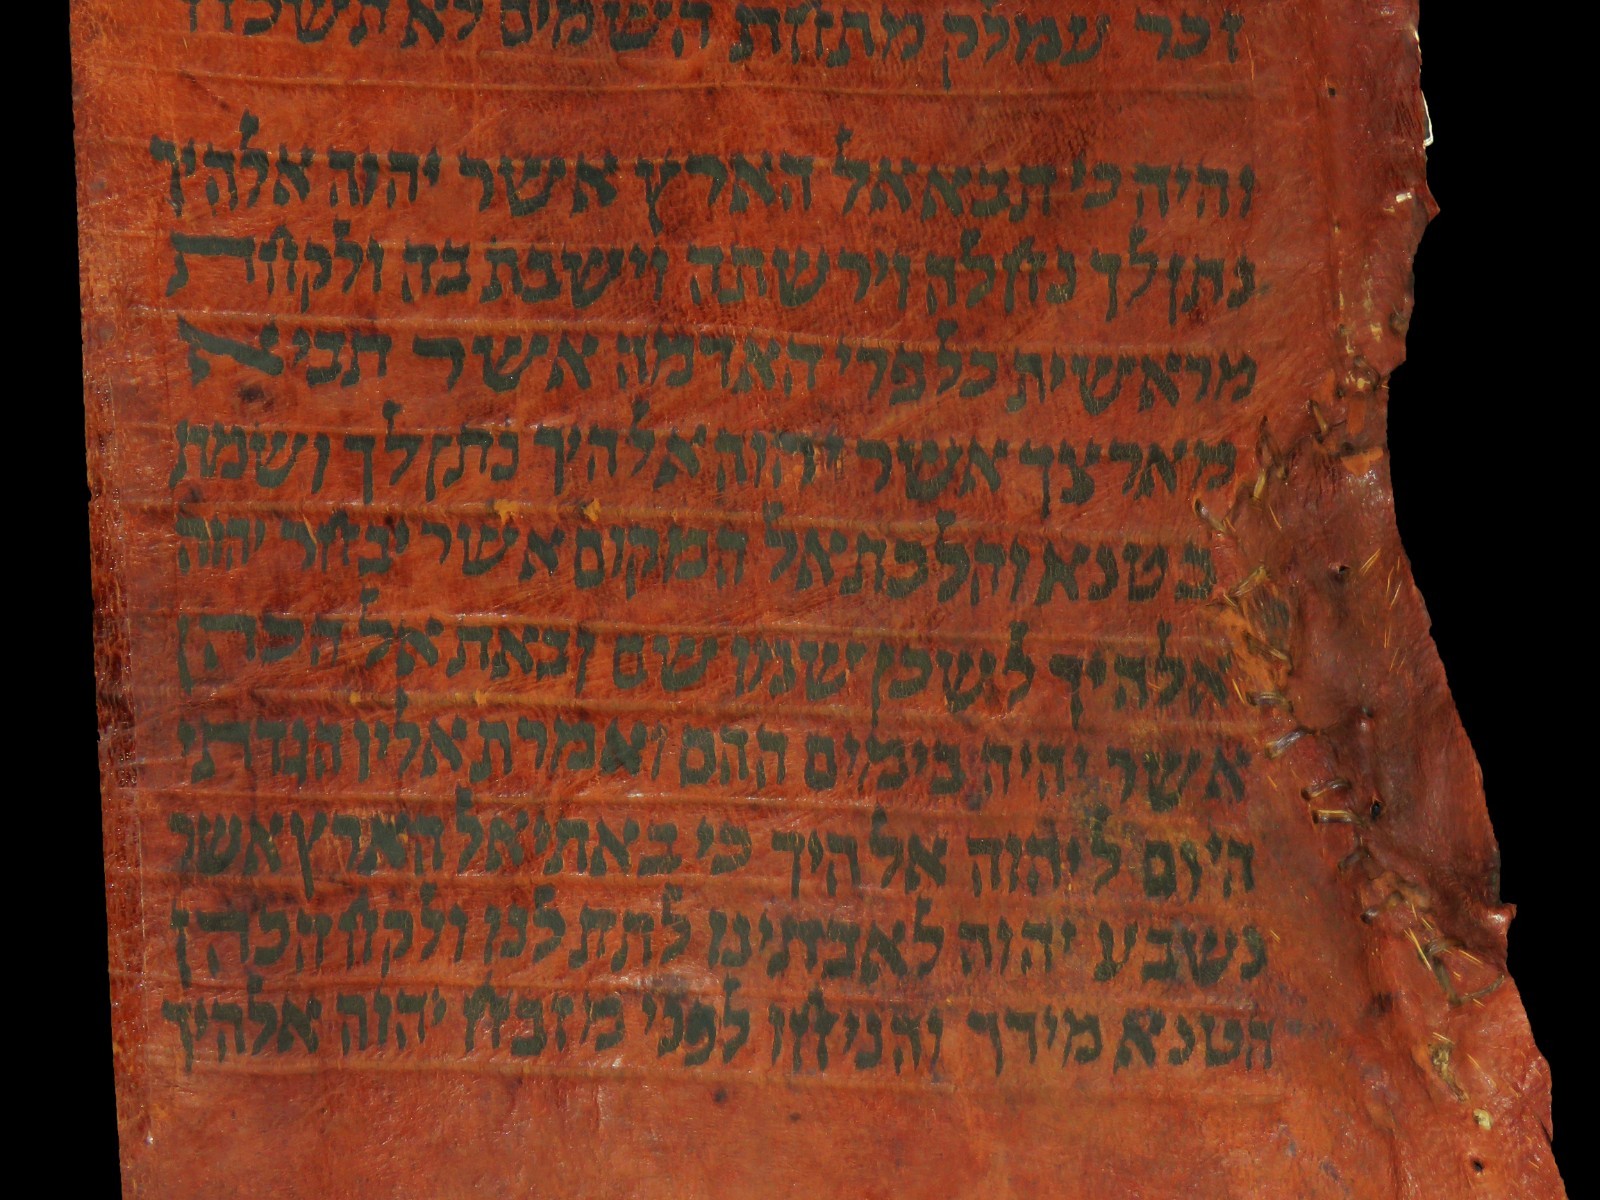 זכר עמלק מתחת השמים לא תשכח
והיה כי תבא אל הארץ אשר יהוה אלהיך
נתן לך נחלה וירשתה וישבת בה ולקחת
מראשית כל פרי האדמה אשר תביא
מארצך אשר יהוה אלהיך נתן לך ושמת
בטנא והלכת אל המקום אשר יבחר יהוה
אלהיך לשכן שמו שם ובאת אל הכהן
אשר יהיה בימים ההם ואמרת אליו הגדתי
היום ליהוה אלהיך כי באתי אל הארץ אשר
נשבע יהוה לאבתינו לתת לנו ולקח הכהן
הטנא מידך והניחו לפני מזבח יהוה אלהיך